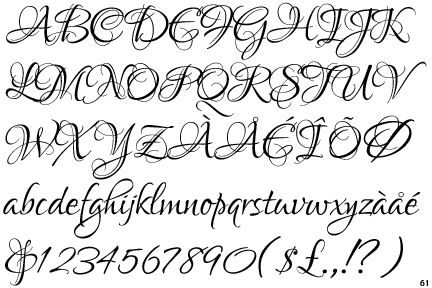 ABCDEFGHIJK
LMNOPQRSTUV
WXYZÀÅÉÎÕØ
abcdefghijklmnopqrstuvwxyzàåé
&1234567890($£.,!?)
61